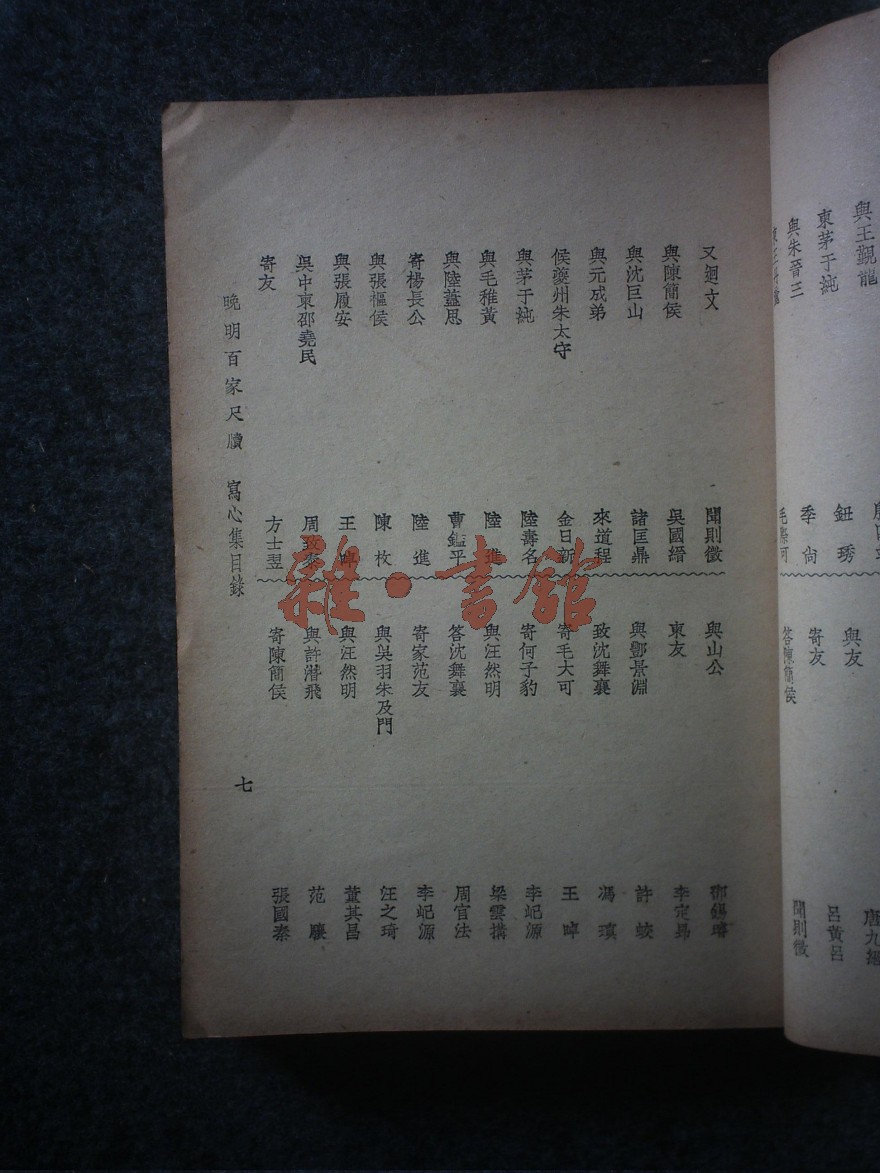 與王觀龍
東茅于純
與朱晉三
鈕琇
季尙
毛際可
與友
寄友
答陳簡侯
唐九經
呂黃呂
聞則徵
又廻文 聞則徵
與陳簡侯 吳國縉
與沈巨山 諸匡鼎
與元成弟 來道程
候夔州朱太守 金日新
與茅于純 陸壽名
與毛稚黃 陸進
與陸藎思 曹鑑平
寄楊長公 陸進
與張樞侯 陳枚
與張履安 王晫
吳中柬邵堯民 周致泰
寄友 方士翌
與山公
柬友 李定昴
與酆景淵 許蛟
致沈舞襄 馮瑱
寄毛大可 王晫
寄何子豹 李屺源
與汪然明 梁雲搆
答沈舞襄 周官法
寄家范友 李屺源
與吳羽朱及門 汪之琦
與汪然明 董其昌
與許潛飛 范驤
寄陳簡侯 張國泰
晚明百家尺牘 寫心集目錄
七
雜·書館